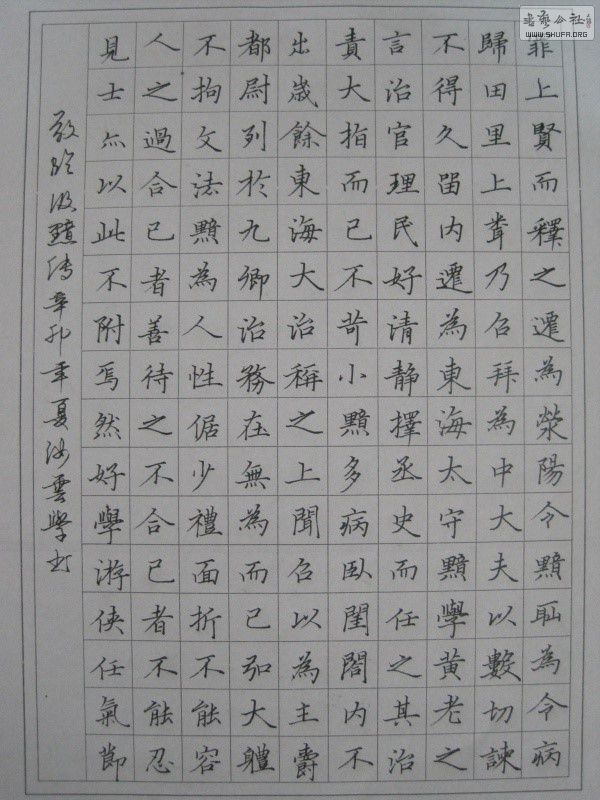 罪上賢而釋之遷為滎陽令黯恥為令病
歸田里上聞乃召拜為中大夫以數切諫
不得久留内遷為東海太守黯學黃老之
言治官理民好清静擇丞史而任之其治
責大指而已不苛小黯多病臥閨閤内不
出歲餘東海大治稱之上聞召以為主爵
都尉列於九卿治務在無為而已弘大軆
不拘文法黯為人性倨少禮面折不能容
人之過合己者善待之不合己者不能忍
見士亦以此不附焉然好學游俠任氣節
敬臨汲黯傳辛卯年夏雲學書
公社
WWW.SHUFA.ORG